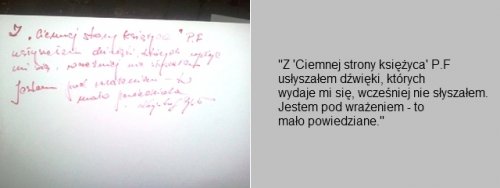 Z „Ciemnej strony księżyca" P.F
usłyszałem dźwięki, których wydaje
mi się, wcześniej nie słyszałem
Jestem pod wrażeniem - to
mało powiedziane
"Z 'Ciemnej strony księżyca' P.F
usłyszałem dźwięki, których
wydaje mi się, wcześniej nie słyszałem.
Jestem pod wrażeniem - to
mało powiedziane."